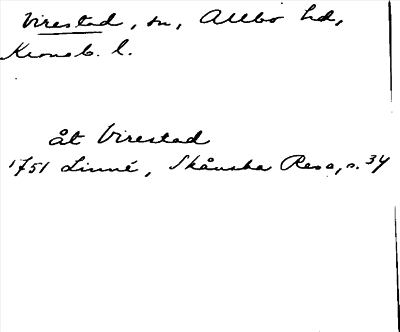 Virestad, sn, Allbo hd,
Kronob. l.
åt Virestad
1751 Linné, Skånska Resa, s. 34